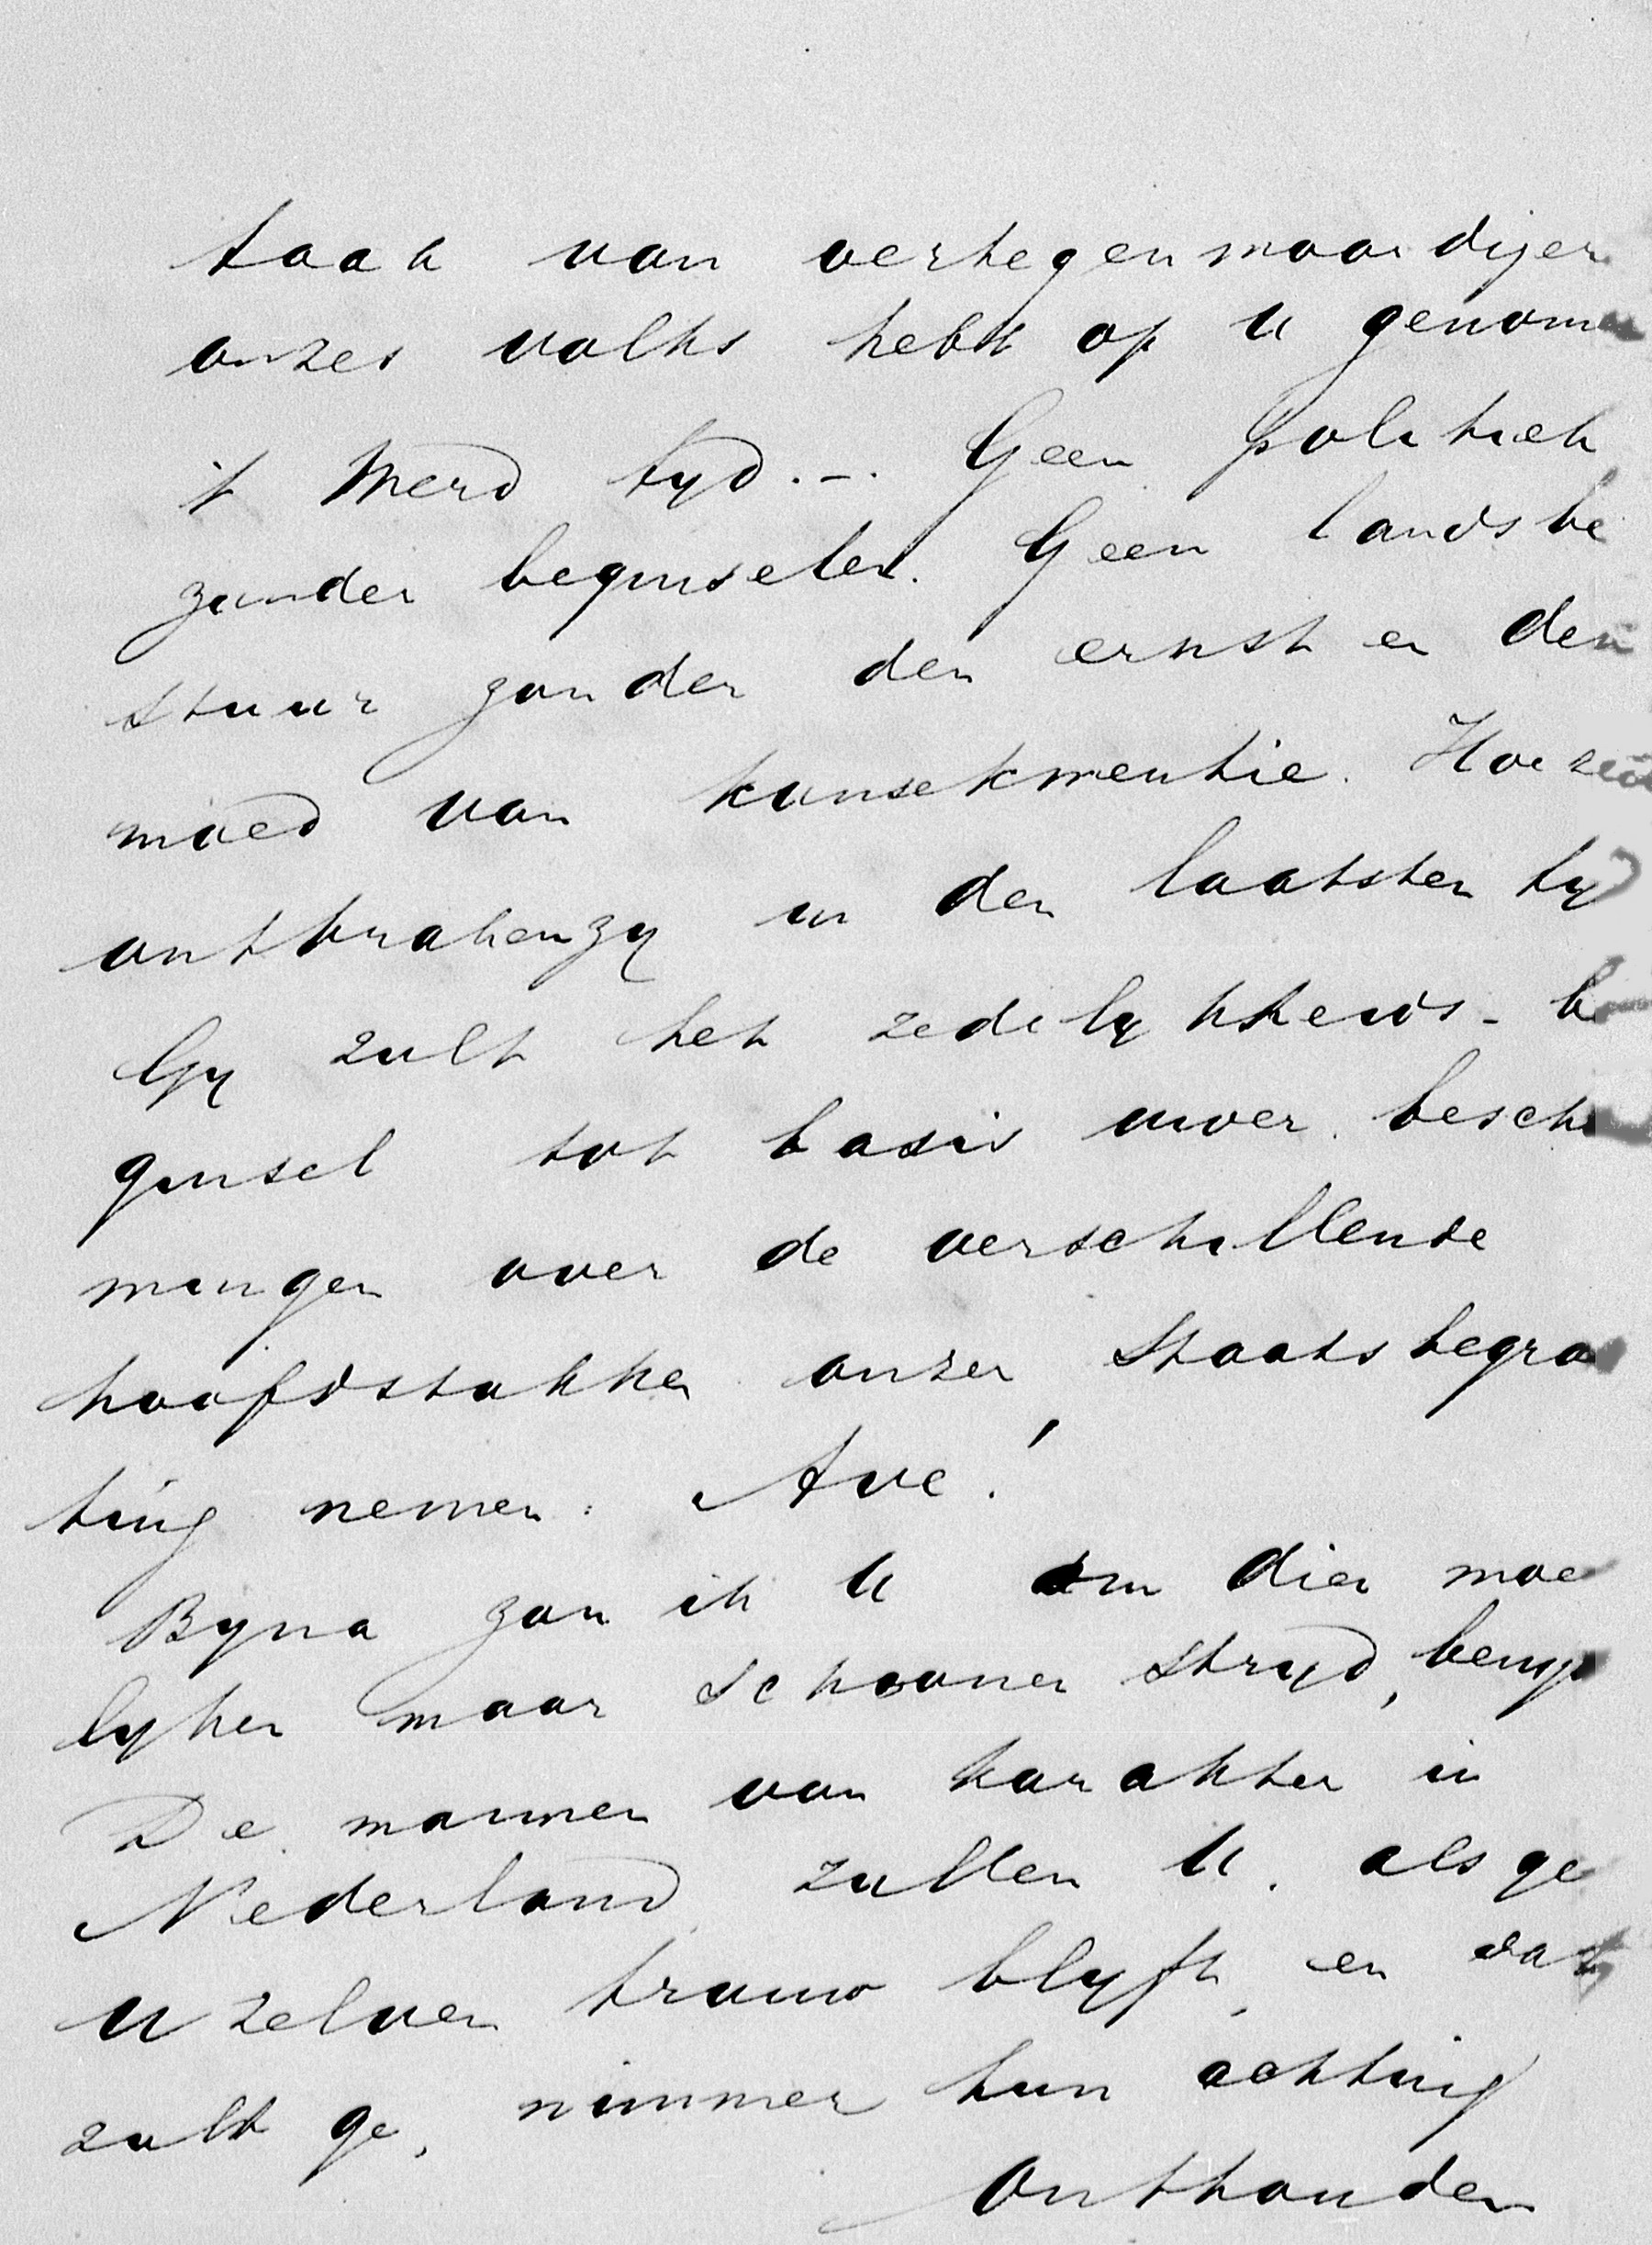 taak van vertegenwoordiger
onzes volks hebt op U genomen
't Werd tyd. -. Geen politiek
zonder beginselen. Geen landsbe
stuur zonder den ernst en den
moed van konsekwentie. Hoezeer
ontbraken zy in den laatsten tyd
Gy zult het zedelykheids-be
ginsel tot basis uwer besch
mingen over de verschillende
hoofdstukken onzer Staatsbegroo
ting nemen: Ave!
Byna zou ik U om dien moe
lyken maar schoonen stryd, benyd
De mannen van karakter in
Nederland zullen U. als ge
U zelven trouw blyft, en dat
zult ge, nimmer hun achting
onthouden